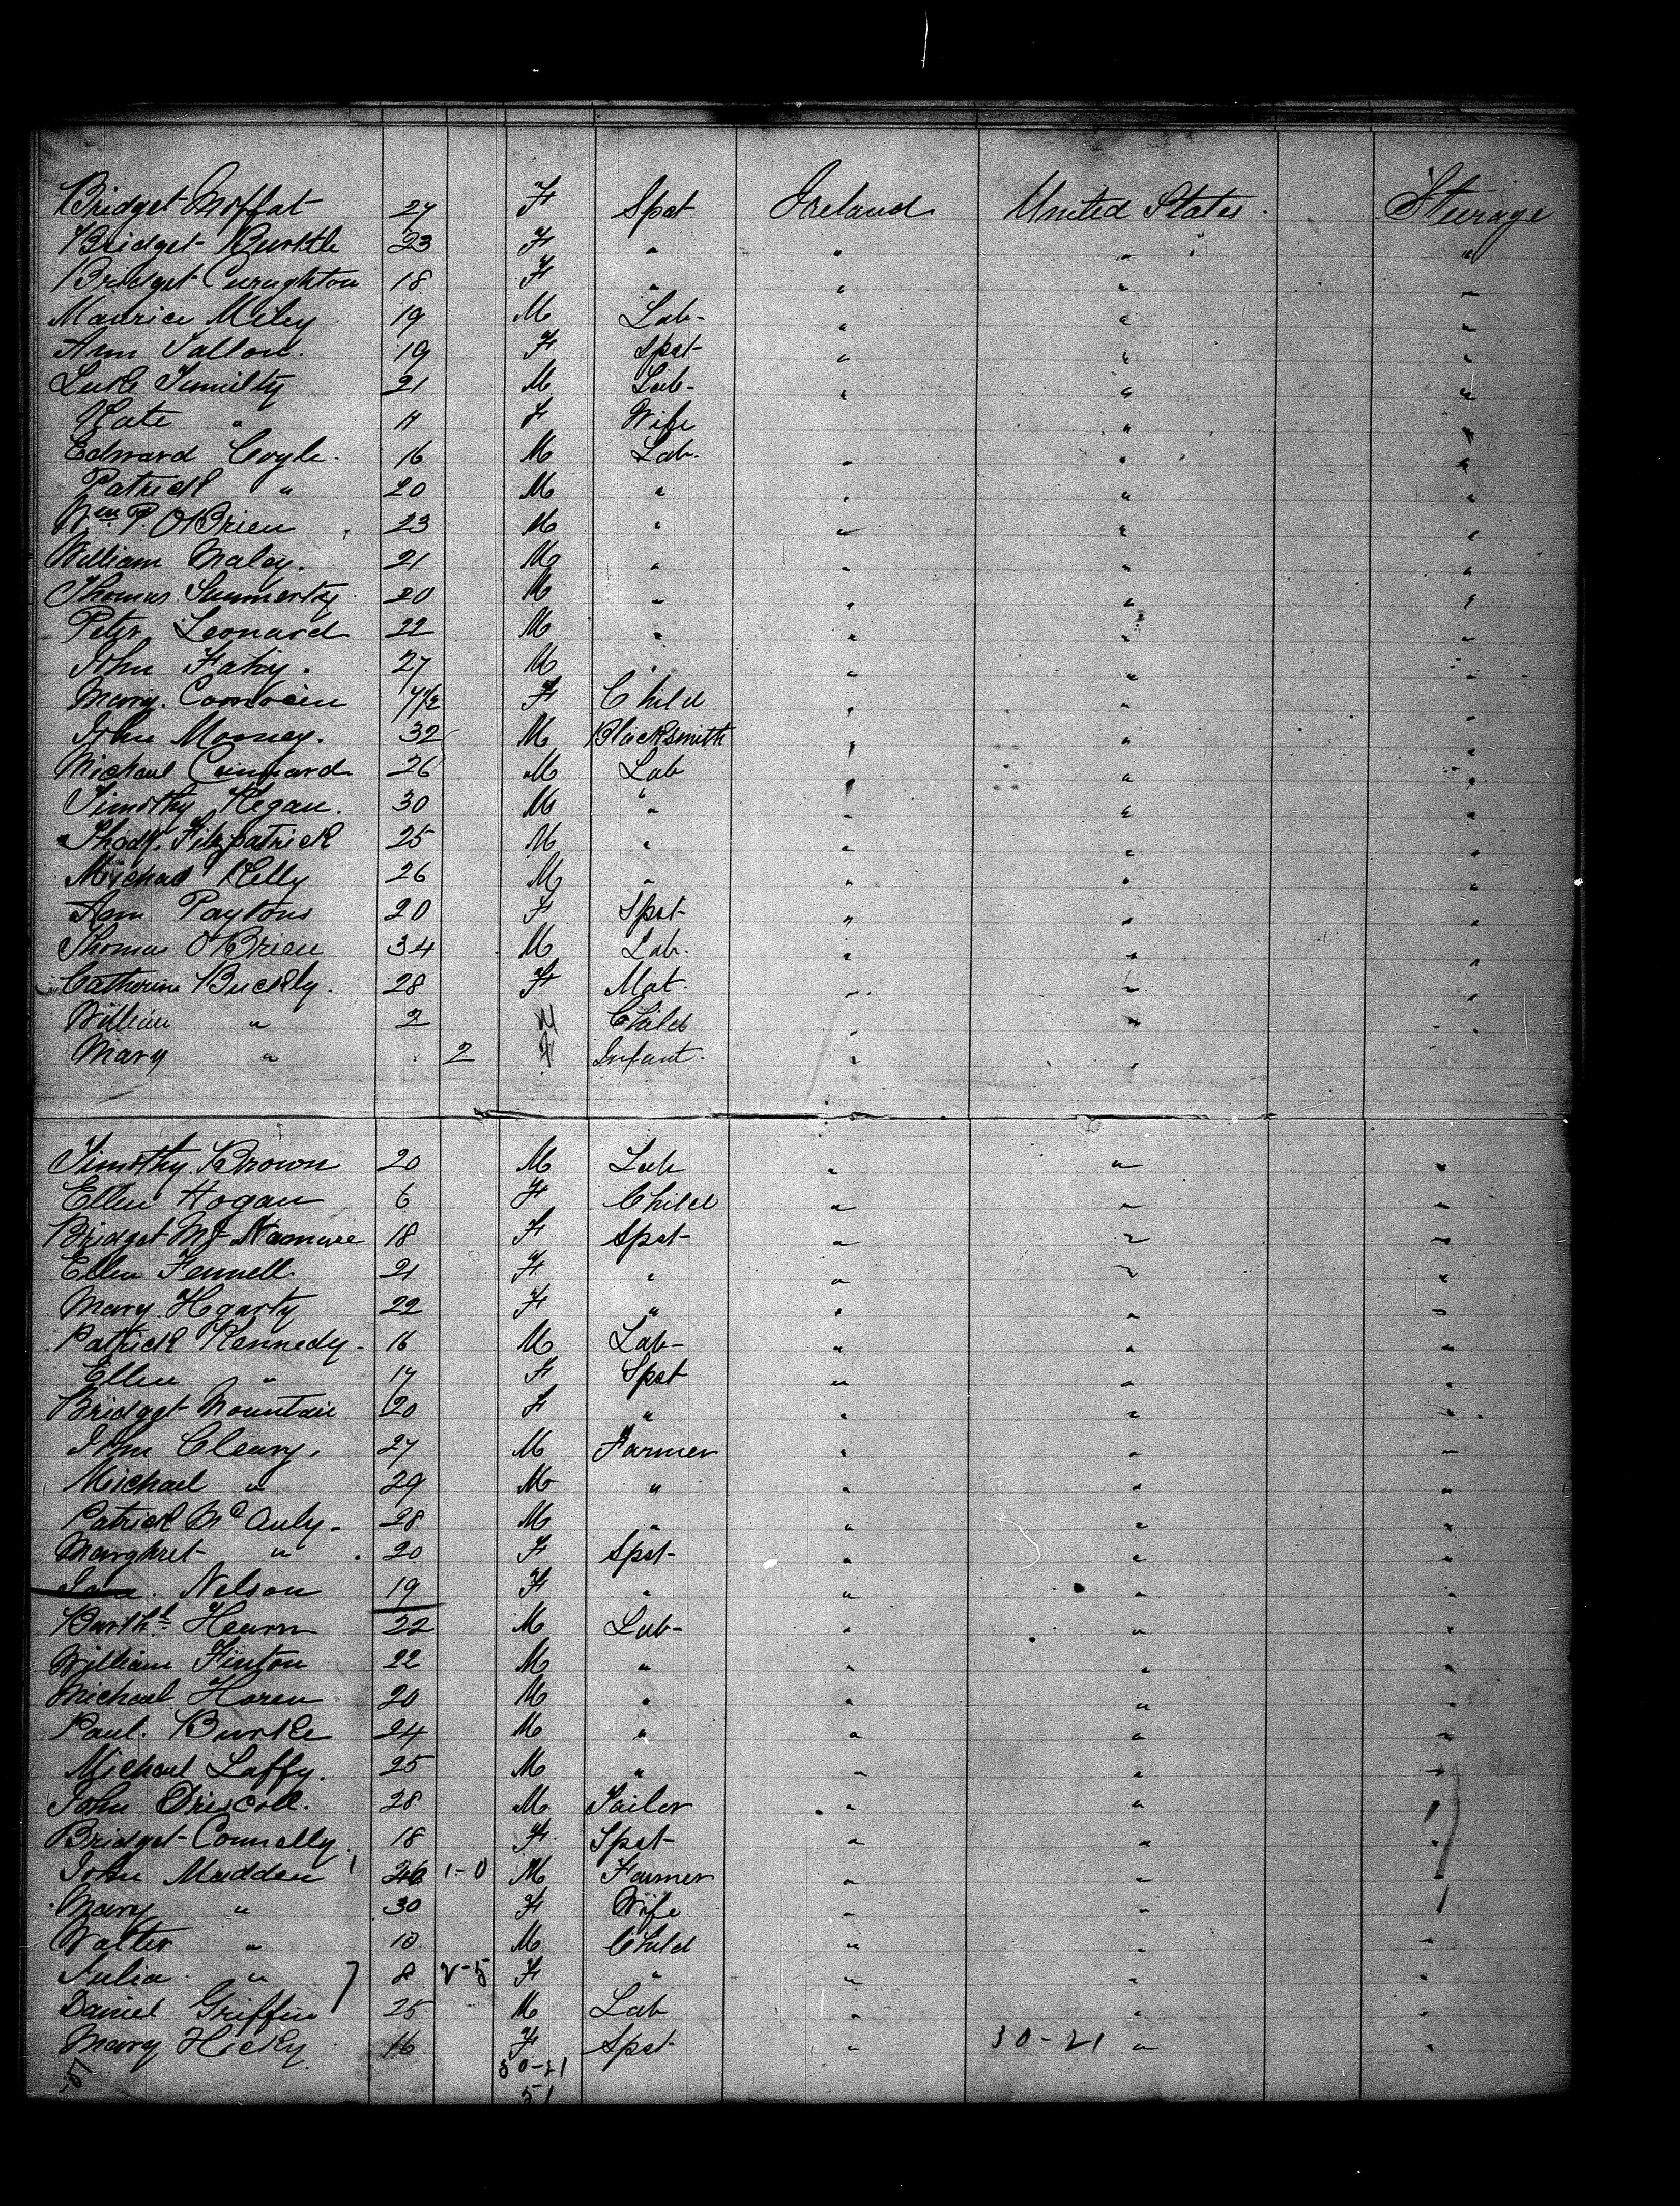 Bridget Moffat 27 F Spst Ireland United States Sturage
Bridget Burke 23 F " " " "
Bridget Curughton 18 F " " " "
Maurice Miley 19 M Lab- " " "
Ann Fallon. 19 F Spst- " " "
Luke Tumilty 21 M Lab- " " "
Kate " 11 F Wife " "
Edward Coyle. 16 M Lab. " " "
Patrick " 20 M " " " "
Wm P. OBrien 23 M " " " "
William Maley. 21 M " " " "
Thomas Summerty 20 M " " " "
Peter Leonard 22 M " " " "
John Fahy. 27 M " " " "
Mary F Child " " "
John Mooney. 32 M Blacksmith " " "
Michael 26 M Lab " " "
Timothy Kegan. 30 M " " " "
Fitzpatrick 25 M " " " "
Michael Kelly 26 M " " " "
Ann Paytons 20 F Spst- " " "
Thomas OBrien 34 M Lab. " " "
Catherine Buckly. 28 F Mat. " " "
William " 2 Child " " "
Mary " 2 F Infant. " "
Timothy Brown 20 M Lab " " "
Ellen Hogan 6 F Child " " "
Bridget Mc Namare 18 F Spst- " " "
Ellen Fennell 21 F " " " "
Mary Hegarty 22 F " " " "
Patrick Kennedy- 16 M Lab- " " "
Ellen " 17 F Spst " " "
Bridget Mountain 20 F " " " "
John Cleary. 27 M Farmer " " "
Michael " 29 M " " " "
Patrick Mc Auly- 28 M " " " "
Marghret- " 20 F Spst- " " "
Nelson 19 F " " " "
Barthl Hearn 22 M Lab- " " "
William Finton 22 M " " " "
Michael Horen 20 M " " " "
Paul. Burke 24 M " " " "
Michael Laffy. 25 M " " " "
John Driscoll. 28 M Tailor " " "
Bridget Connelly 18 F Spst- " " "
John Madden 1-0 M Farmer " " "
Mary " 30 F Wife " "
Walter " 10 M Child " " "
Julia " 8 2-5 F " " " "
Daniel Griffin 25 M Lab " " "
Mary Hicky 16 F Spst- " 30-21 " "
5 30-21
51